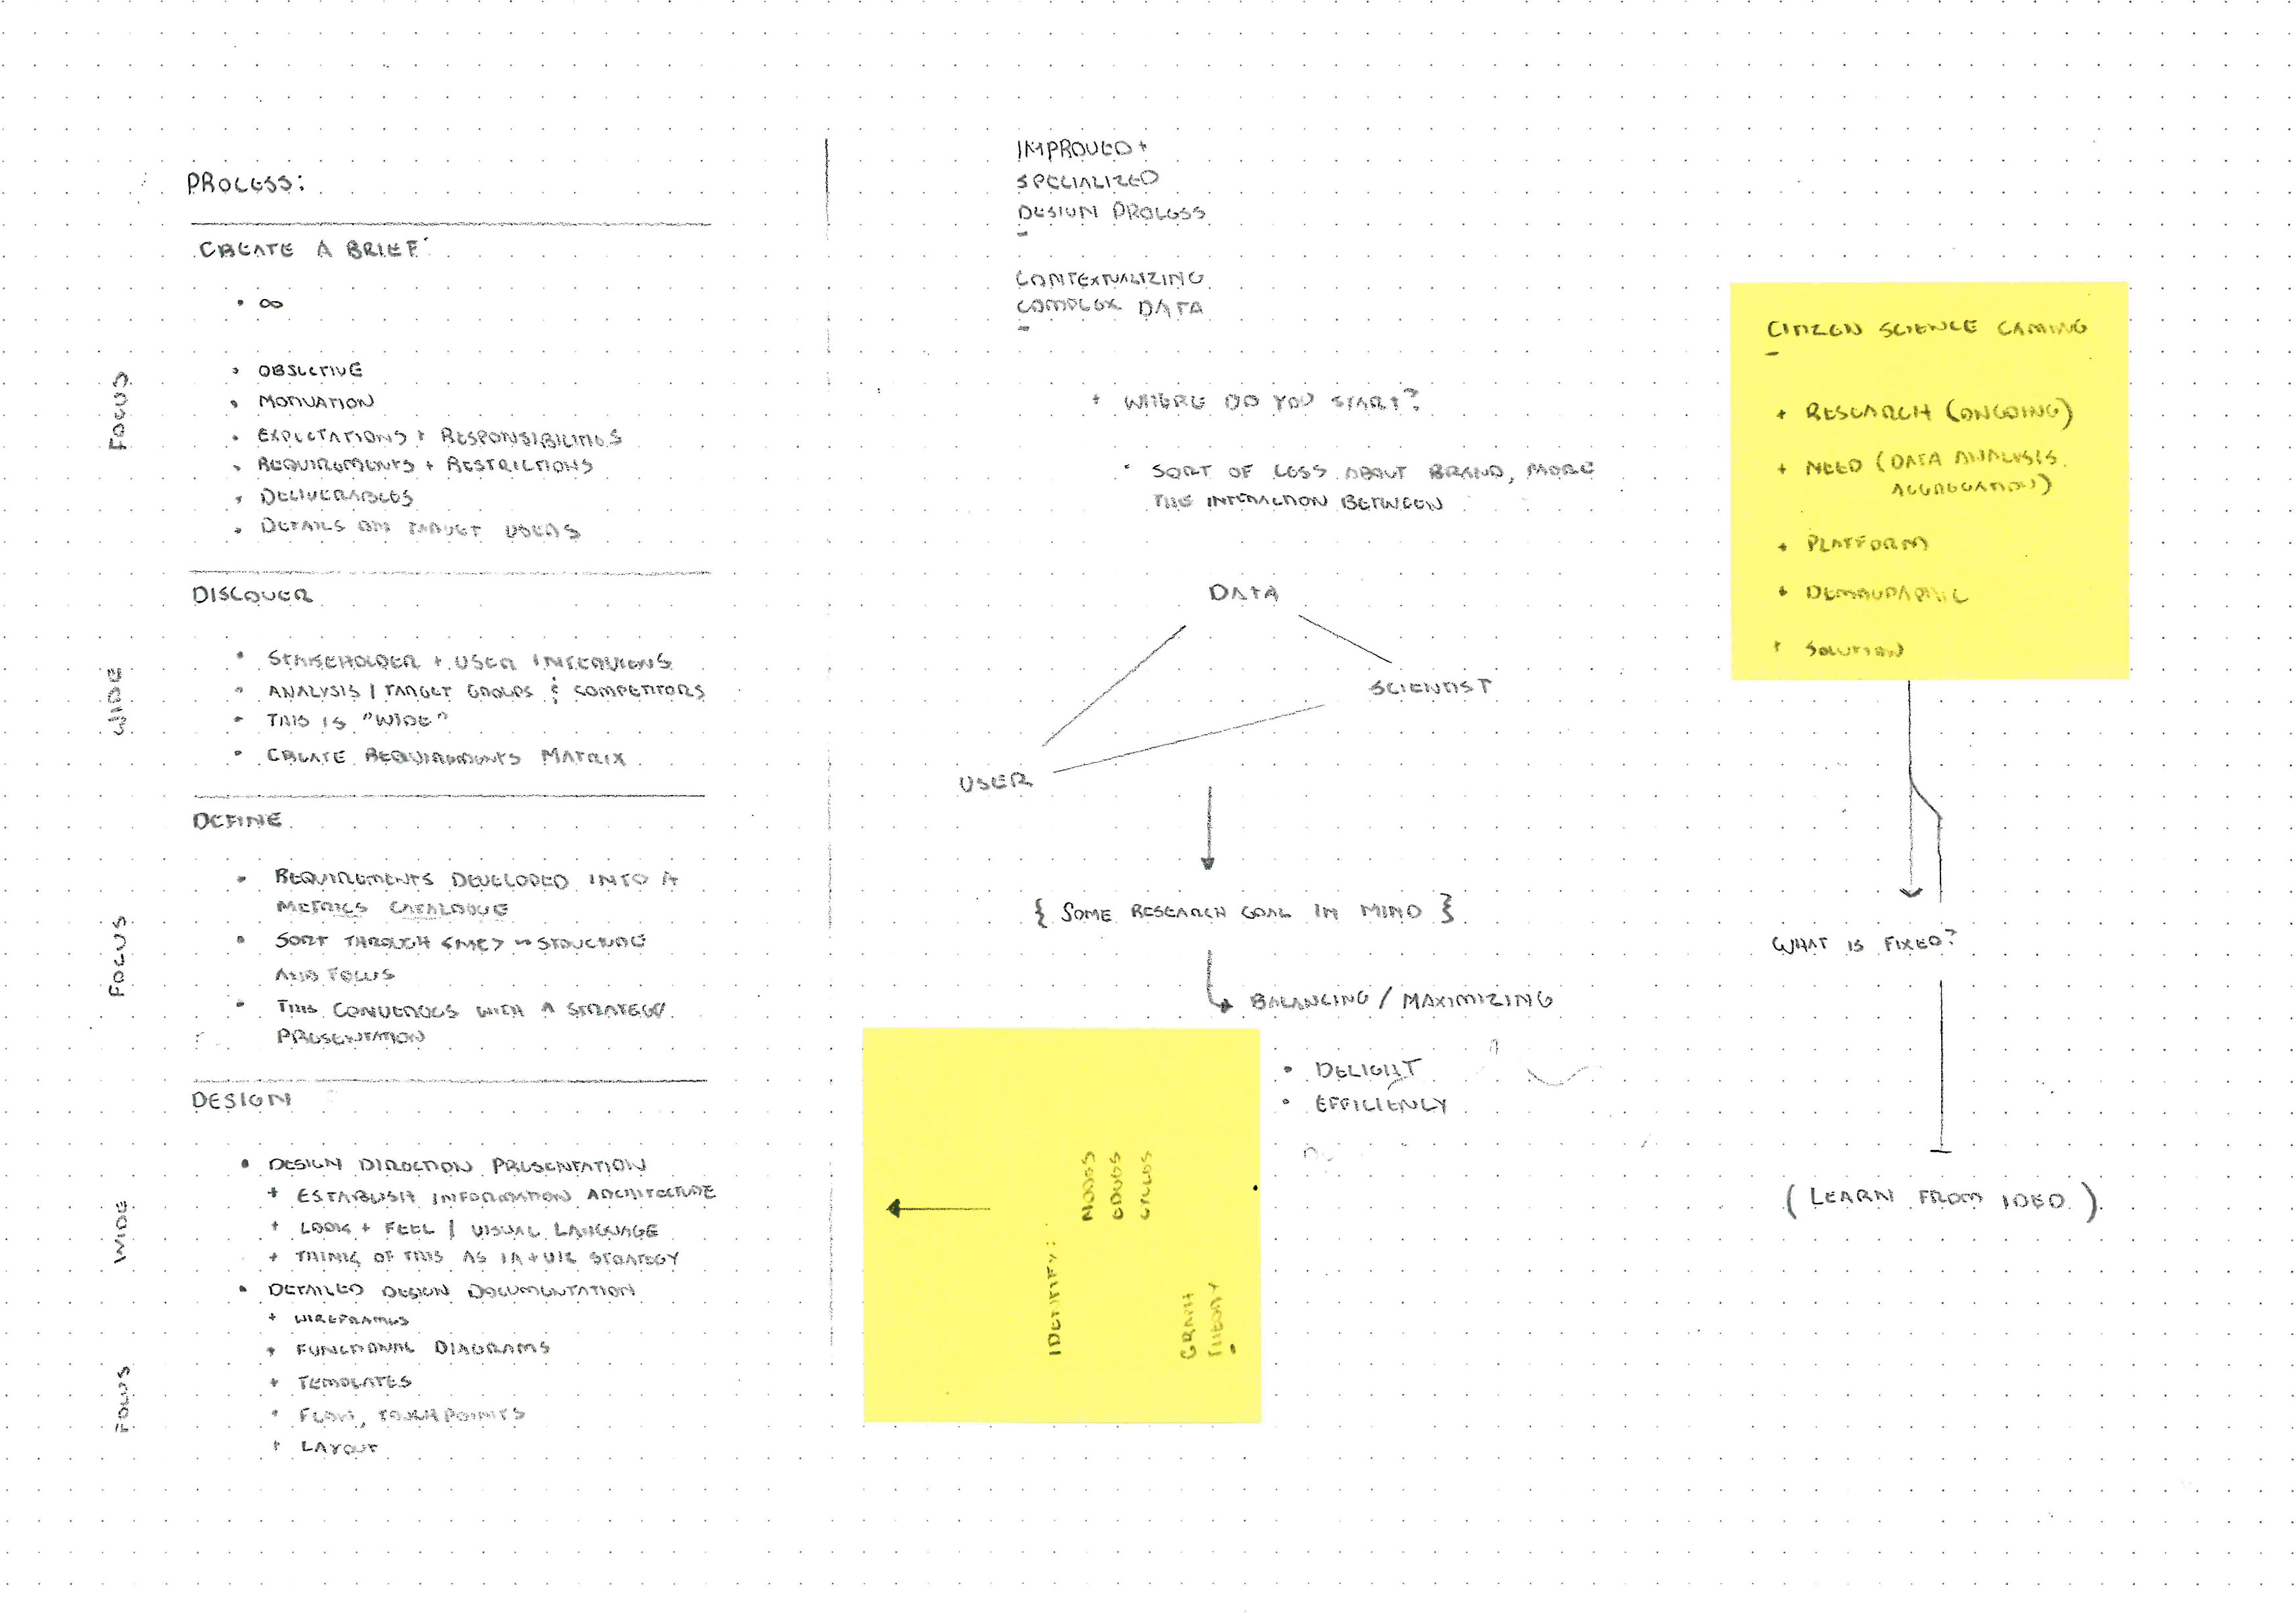 PROCESS:
CREATE A BRIEF:
∞
OBJECTIVE
MOTIVATION
EXPECTATIONS + RESPONSIBILITIES
REQUIREMENTS + RESTRICTIONS
DELIVERABLES
DETAILS ON TARGET USERS
FOCUS
DISCOVER
STAKEHOLDER + USER INTERVIEWS
ANALYSIS / TARGET GROUPS & COMPETITORS
THIS IS "WIDE"
CREATE REQUIREMENTS MATRIX
WIDE
DEFINE
REQUIREMENTS DEVELOPED INTO A
METRICS CATALOGUE
SORT THROUGH <MC> STRUCTURE
AND FOCUS
THIS CONVERGES WITH A STRATEGY
PRESENTATION
FOCUS
DESIGN
DESIGN DIRECTION PRESENTATION
+ ESTABLISH INFORMATION ARCHITECTURE
+ LOOK + FEEL / VISUAL LANGUAGE
+ THINK OF THIS AS IA + UX STRATEGY
DETAILED DESIGN DOCUMENTATION
+ WIREFRAMES
+ FUNCTIONAL DIAGRAMS
+ TEMPLATES
+ FLOW, TOUCHPOINTS
+ LAYOUT
WIDE
FOCUS
IMPROVED +
SPECIALIZED
DESIGN PROCESS
CONTEXTUALIZING
COMPLEX DATA
+ WHERE DO YOU START?
SORT OF LESS ABOUT BRAND, MORE
THE INTERACTION BETWEEN
DATA
SCIENTIST
USER
{ SOME RESEARCH GOAL IN MIND }
BALANCING / MAXIMIZING
DELIGHT
EFFICIENCY
IDENTIFY:
NODES
EDGES
CYCLES
GRAPH
THEORY
CITIZEN SCIENCE GAMING
+ RESEARCH (ONGOING)
+ NEED (DATA ANALYSIS
AGGREGATION)
+ PLATFORM
+ DEMOGRAPHIC
+ SOLUTION
WHAT IS FIXED?
(LEARN FROM IDEO)